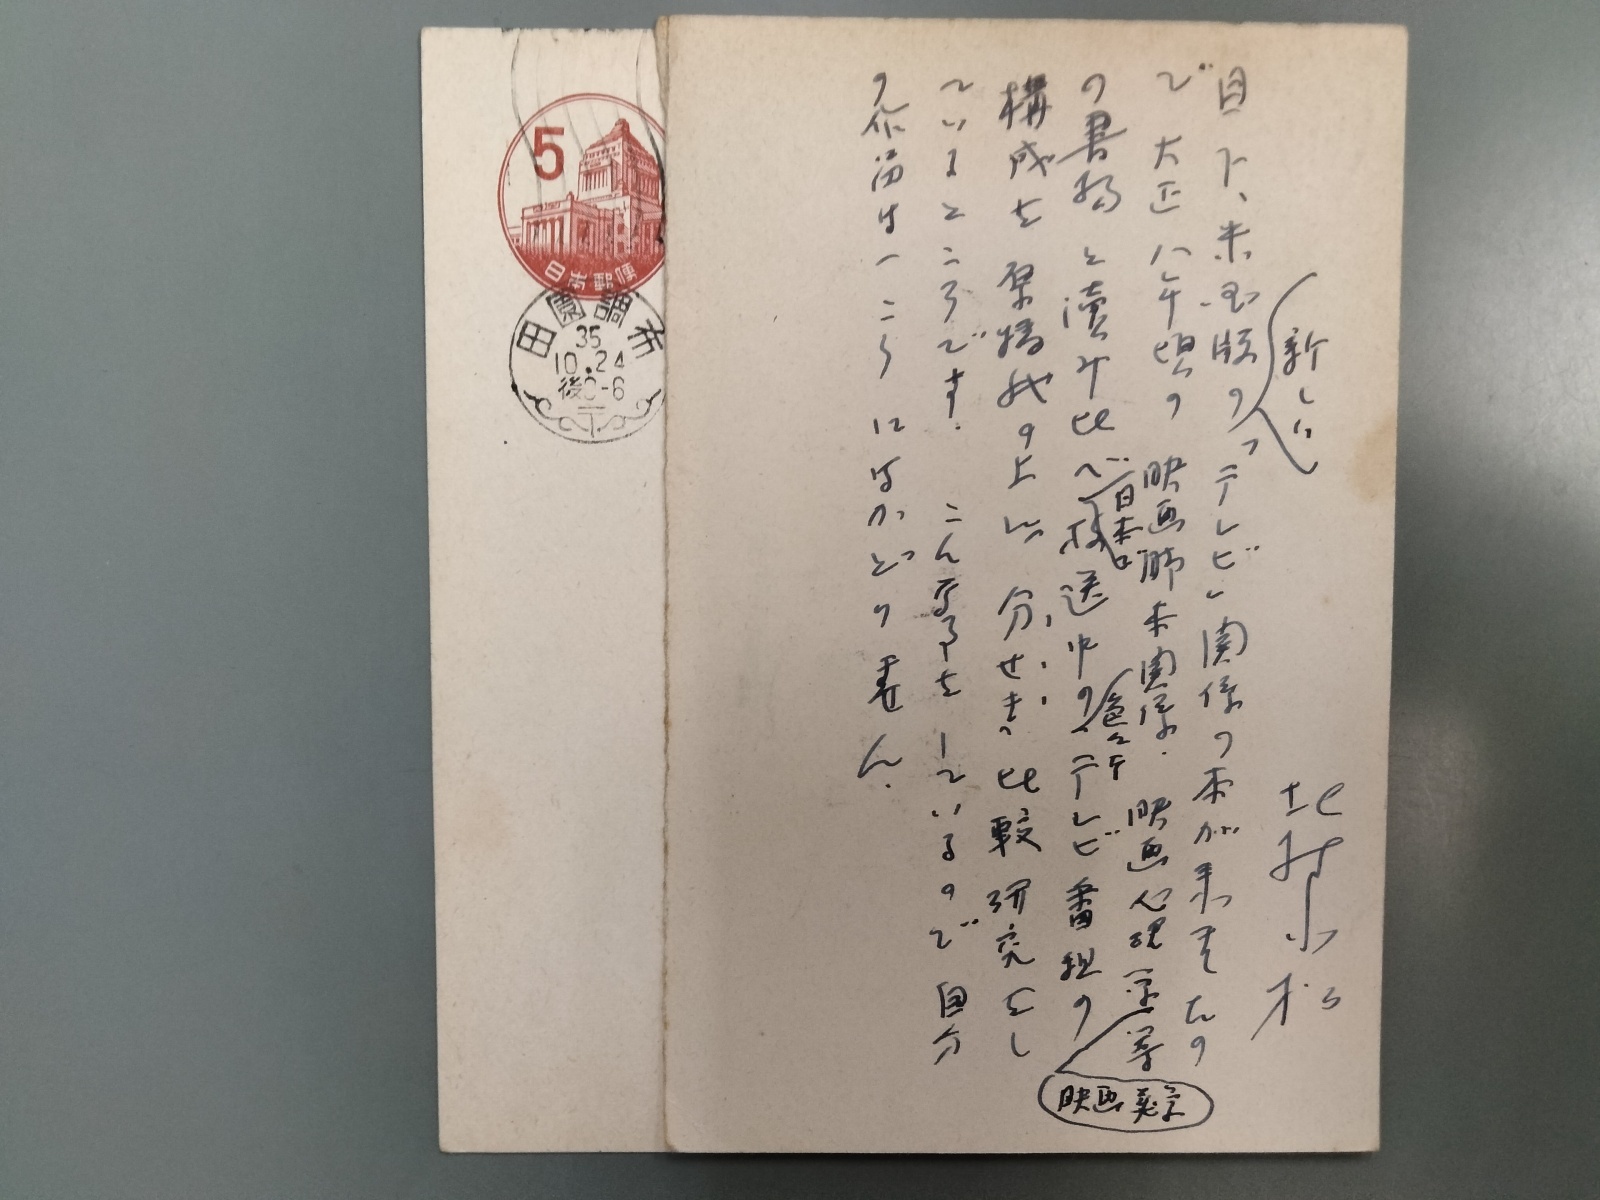 地村小松
目下、米国版の「テレビ」関係の本が来ましたの
新しい
で 大正八年頃の 映画脚本関係. 映画心理学等
映画美学
の書物と讀み比べ 放送中の テレビ番組の
日本の
色々
構成を 架橋 の上に 分せき 比較研究をし
ているところです. こんな事を しているので 自分
の 作 は一こう にはかどりません.
5
日本郵便
田園調布
35
10.24
後0-6